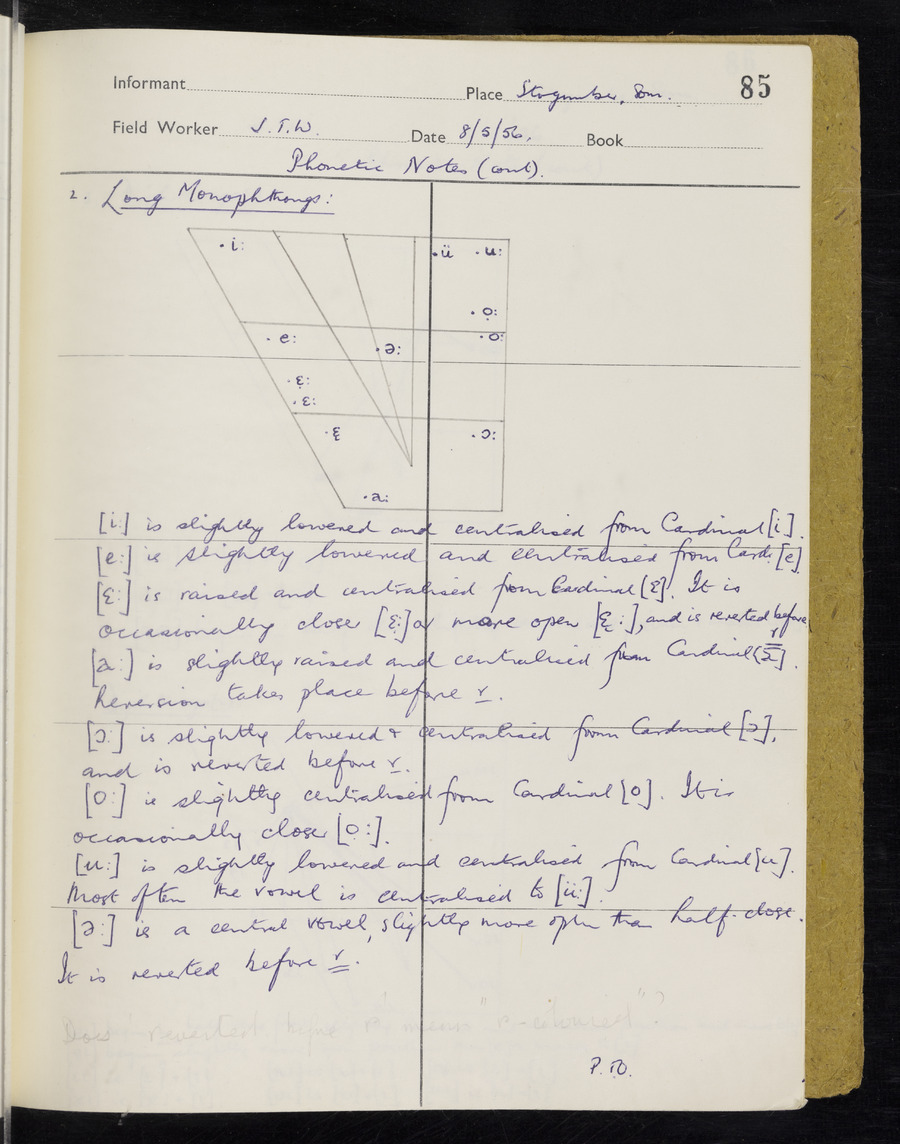 Informant
Place Stogumber, Som. 85
Field Worker J.T.W. Date 8/5/56. Book
Phonetic Notes (cont).
2. Long Monophthongs:
i: ü u:
o̝:
e: ə: o:
ɛ̝:
ɛ:
ɛ̞ ɔ:
a:
[i:] is slightly lowered and centralised from Cardinal [i].
[e:] is slightly lowered and centralised from Card: [e]
[ɛ:] is raised and centralised from Cardinal [ɛ]. It is
occasionally close [ɛ̝:] or more open [ɛ̞:], and is reverted before
r
[a:] is slightly raised and centralised from Cardinal [a].
Reversion takes place before r.
[ɔ:] is slightly lowered & centralised from Cardinal [ɔ],
and is reverted before r.
[o:] is slightly centralised from Cardinal [o]. It is
occasionally closer [o̝:].
[u:] is slightly lowered and centralised from Cardinal [u].
Most often the vowel is centralised to [ü:].
[ə:] is a central vowel, slightly more open than half-close.
It is reverted before r.
Does 'reverted before r' mean "r-coloured"?
P.T.O.